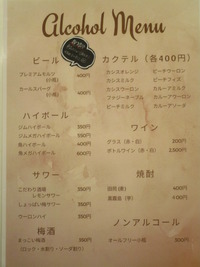 Alcohol Menu
ビール
プレミアムモルツ 400円
(小瓶)
カールスバーグ 500円
(小瓶)
ハイボール
ジムハイボール 350円
ジムメガハイボール 550円
角ハイボール 400円
角メガハイボール 600円
サワー
こだわり酒場
レモンサワー 350円
しょっぱい梅サワー 350円
ウーロンハイ 350円
梅酒
まっこい梅酒 350円
(ロック・水割り・ソーダ割り)
カクテル (各400円)
カシスオレンジ ピーチウーロン
カシスミルク ピーチフィズ
カシスウーロン カルーアミルク
ファジーネーブル カルーアウーロン
ピーチミルク カルーアソーダ
ワイン
グラス (赤・白) 300円
ボトルワイン (赤・白) 2300円
焼酎
400円
(芋) 400円
ノンアルコール
オールフリー小瓶 300円